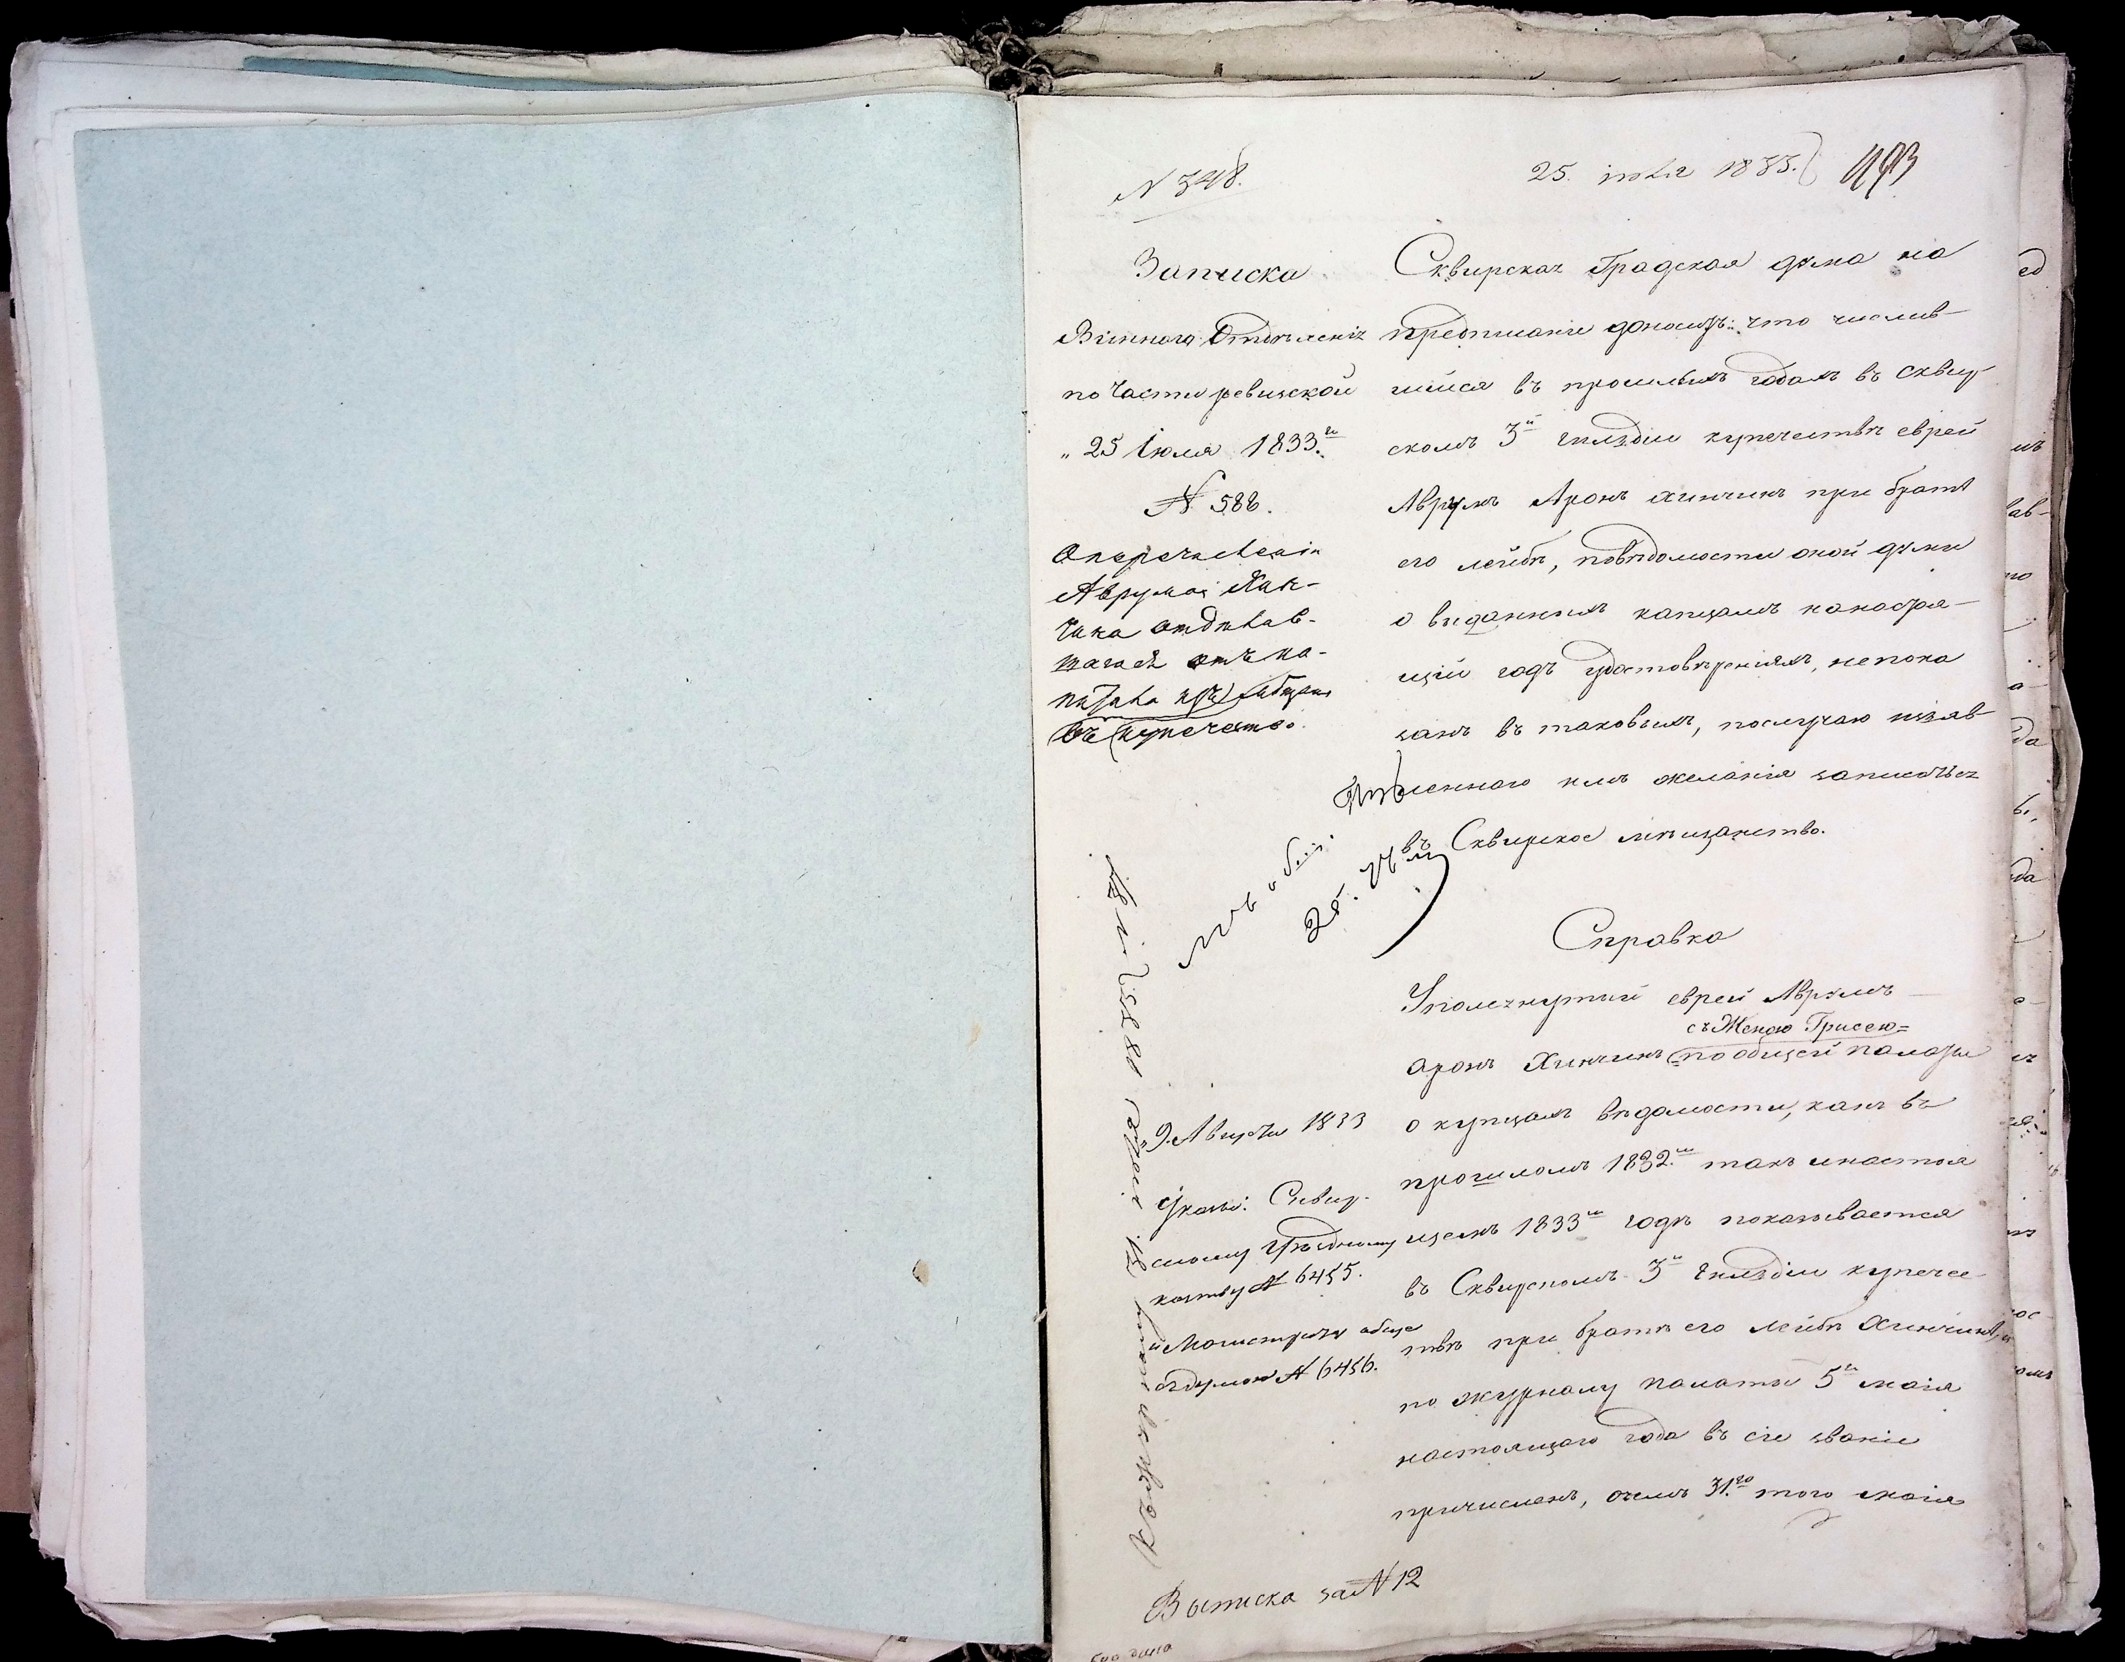 N 348.
25. июля 1833.
493
Записка
Виннаго Отделенія
по части ревизской
„ 25 Іюля 1833го
N 588.
О перечисленіи
Аврума Хин-
чина отделив-
шагося отъ ка-
питала изъ мещанъ
въ купечество
Сквирская Градская дума на
предписаніе доноситъ: что числив-
шийся въ прошлыхъ годахъ въ сквир-
скомъ 3й гильдіи купечестве еврей
Аврумъ Аронъ хинчинъ при брате
его лейбе, поведомости оной думы
о выданныхъ купцамъ нанастоя-
щій годъ удостовереніяхъ, непока
занъ въ таковыхъ, послучаю изъяв-
леннаго имъ желанія записаться
въ Сквирское мещанство.
25.
Справка
Упомянутый еврей Аврумъ
съ Женою Грисею
аронъ Хинчинъ по общей палаты
о купцахъ ведомости, какъ въ
прошломъ 1832м такъ инастоя
щемъ 1833м годе показывается
въ Сквирскомъ 3й гильдіи купечес
тве при брате его лейбе Хинчине, и
по журналу палаты 5го маія
настоящаго года въ сіе званіе
причисленъ, очемъ 31.го того маія
„ 9. Августа 1833
Указы: Сквир-
скому Уездному
казначейству N 6455.
и Магистрату обще
съ думою N 6456.
Выписка за N 12